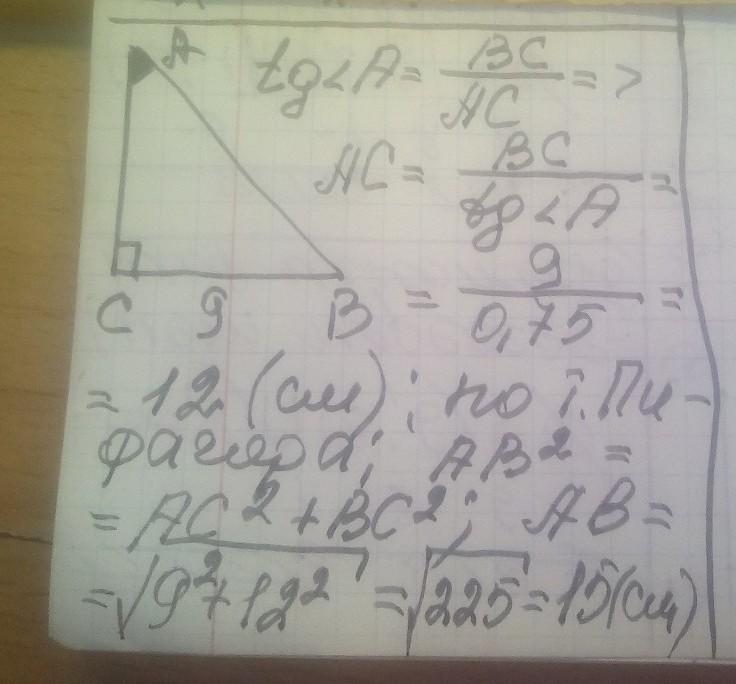 A
tg<A = BC/AC =>
AC = BC/tg<A =
C 9 B
= 9/0,75 =
= 12 (см); по т. Пи-
фагора; AB² =
= AC² + BC²; AB =
= √9²+12² = √225 = 15(см)